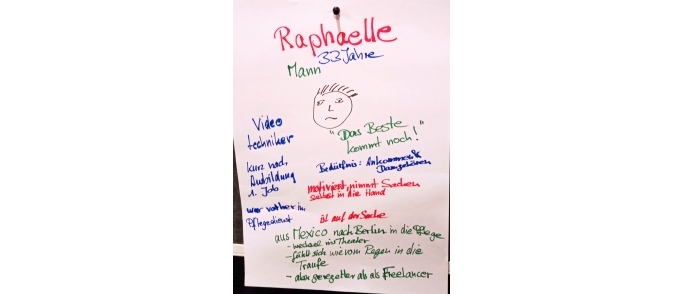 Raphaelle
33 Jahre
Mann
Video
techniker
"Das Beste
kommt noch!"
kurz nach
Ausbildung
1. Job
war vorher im
Pflegedienst
Bedürfnis: Ankommen &
Dazugehören
motiviert, nimmt Sachen
selbst in die Hand
ist auf der Suche
aus Mexico nach Berlin in die Pflege
- wechsel ins Theater
- fühlt sich wie vom Regen in die
Traufe
- aber geregelter als als Freelancer